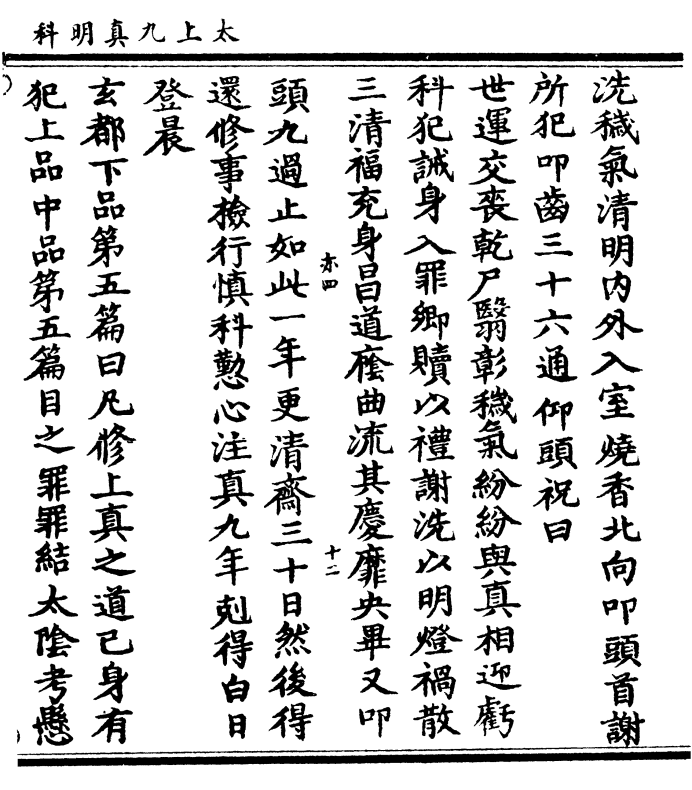 太上九真明科
洗穢氣清明内外入室燒香北向叩頭首謝
所犯叩齒三十六通仰頭祝曰
世運交喪乾尸翳彰穢氣紛紛與真相迎虧
科犯誡身入罪鄉贖以禮謝洗以明燈禍散
三清福充身昌道癊曲流其慶靡央畢又叩
頭九過止如此一年更清齋三十日然後得
赤四
十二
還修事檢行慎科懃心注真九年剋得白日
登晨
玄都下品第五篇曰凡修上真之道己身有
犯上品中品第五篇目之罪罪結太陰考懸